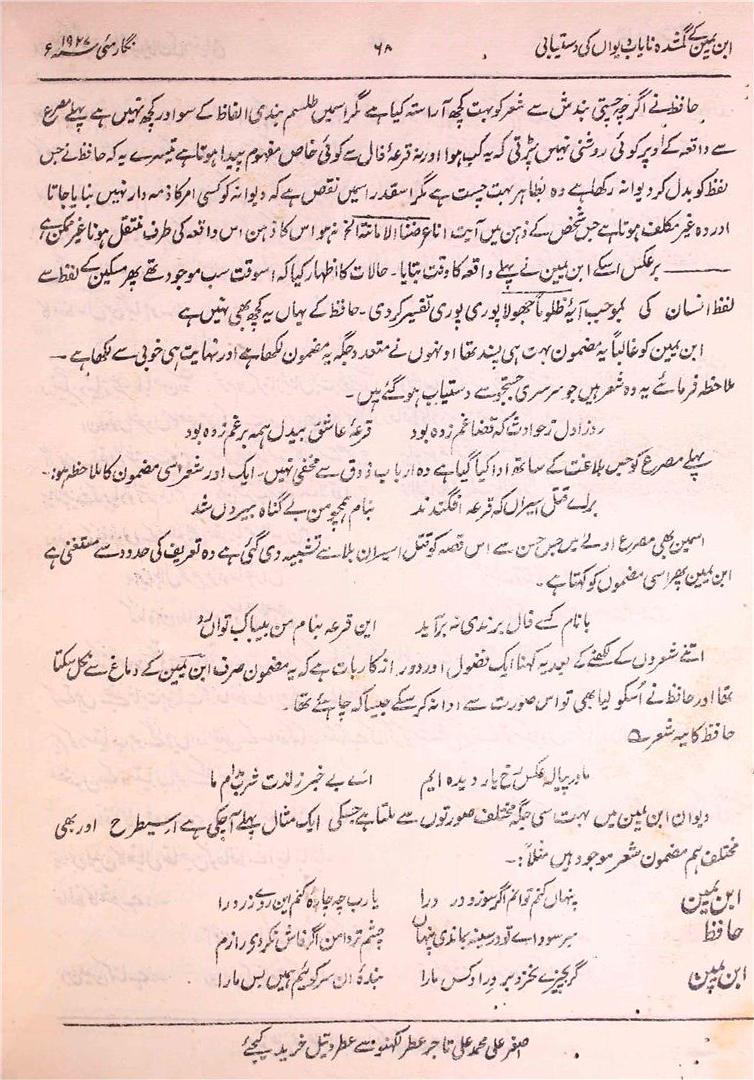 ابن یمین کے گمشدہ نایاب دیواں کی دستیابی ۶۸ نگار مئی سنہ ۱۹۲۷ ء
حافظ نے اگرچہ چستی بندش سے شعر کو بہت کچھ آراستہ کیا ہے مگر اسمیں طلسم بندی الفاظ کے سوا اور کچھ نہیں ہے پہلے مصرع
سے واقعہ کے اُوپر کوئی روشنی نہیں پڑتی کہ یہ کب ہوا اور نہ قرعۂ فال سے کوئی خاص مفہوم پیدا ہوتا ہے تیسرے یہ کہ حافظ نے جس
لفظ کو بدل کر دیوانہ رکھا ہے وہ بظاہر بہت چست ہے مگر اسقدر اسمیں نقص ہے کہ دیوانہ کو کسی امر کا ذمہ دار نہیں بنایا جاتا
اور وہ غیر مکلف ہوتا ہے جس شخص کے ذہن میں آیت اناعرضنا الامانۃ الخ نہ ہو اس کا ذہن اس واقعہ کی طرف منتقل ہونا غیر ممکن ہے
ــــــ برعکس اسکے ابن یمین نے پہلے واقعہ کا وقت بتایا۔ حالات کا اظہار کیا کہ اسوقت سب موجود تھے پھر مسکین کے لفظ سے
لفظ انسان کی بموجب آیۂ ظلوماً جھولا پوری پوری تفسیر کردی۔ حافظ کے یہاں یہ کچھ بھی نہیں ہے
ابن یمین کو غالباً یہ مضمون بہت ہی پسند تھا اونہوں نے متعدد جگہ یہ مضمون لکھا ہے اور نہایت ہی خوبی سے لکھا ہے ۔
ملاحظہ فرمائے یہ وہ شعر ہیں جو سرسری جستجو سے دستیاب ہو گئے ہیں۔
روز ازل ز حوادث کہ قضا غم زدہ بود قرعۂ عاشق بیدل ہمہ بر غم زدہ بود
پہلے مصرع کو جس بلاغت کے ساتھ ادا کیا گیا ہے وہ ارباب ذوق سے مخفی نہیں۔ ایک اور شعر اسی مضمون کا ملاحظہ ہو:۔
برائے قتل اسیراں کہ قرعہ افگندند بنام ہمچو من بے گناہ بیروں شد
اسمین بھی مصرع اولےٰ میں جس حسن سے اس قصہ کو قتل اسیران بلا سے تشبیہ دی گئی ہے وہ تعریف کی حدود سے مستغنی ہے
ابن یمین پھر اسی مضموں کو کہتا ہے۔
با نام کسے فال برندی نہ برآید این قرعہ بنام من بیباک تواں زد
اتنے شعروں کے لکھنے کے بعد یہ کہنا ایک فضول اور دور از کار بات ہے کہ یہ مضمون صرف ابن یمین کے دماغ سے نکل سکتا
تھا اور حافظ نے اُسکو لیا بھی تو اس صورت سے ادا نہ کر سکے جیسا کہ چاہئے تھا۔
حافظ کا یہ شعر ؎
ما در پیالہ عکس رخ یار دیدہ ایم اے بے خبر ز لذت شرب مدام ما
دیوان ابن یمین میں بہت سی جگہ مختلف صورتوں سے ملتا ہے جسکی ایک مثال پہلے آچکی ہے اسیطرح اور بھی
مختلف ہم مضمون شعر موجود ہیں مثلاً:۔
ابن یمین پنہاں کنم توانم اگر سوز و درد را یارب چہ چارہ کنم این روے زرد را
حافظ بر سود اے تو در سینہ بماندی پنہاں چشم تر دامن اگر فاش نکردی رازم
ابن یمین گر بچیزے نخرد مارا بندۂ ان سر کوئیم ہمیں بس مارا
اصغر علی محمد علی تاجر عطر لکھنو سے عطر و تیل خرید کیجئے